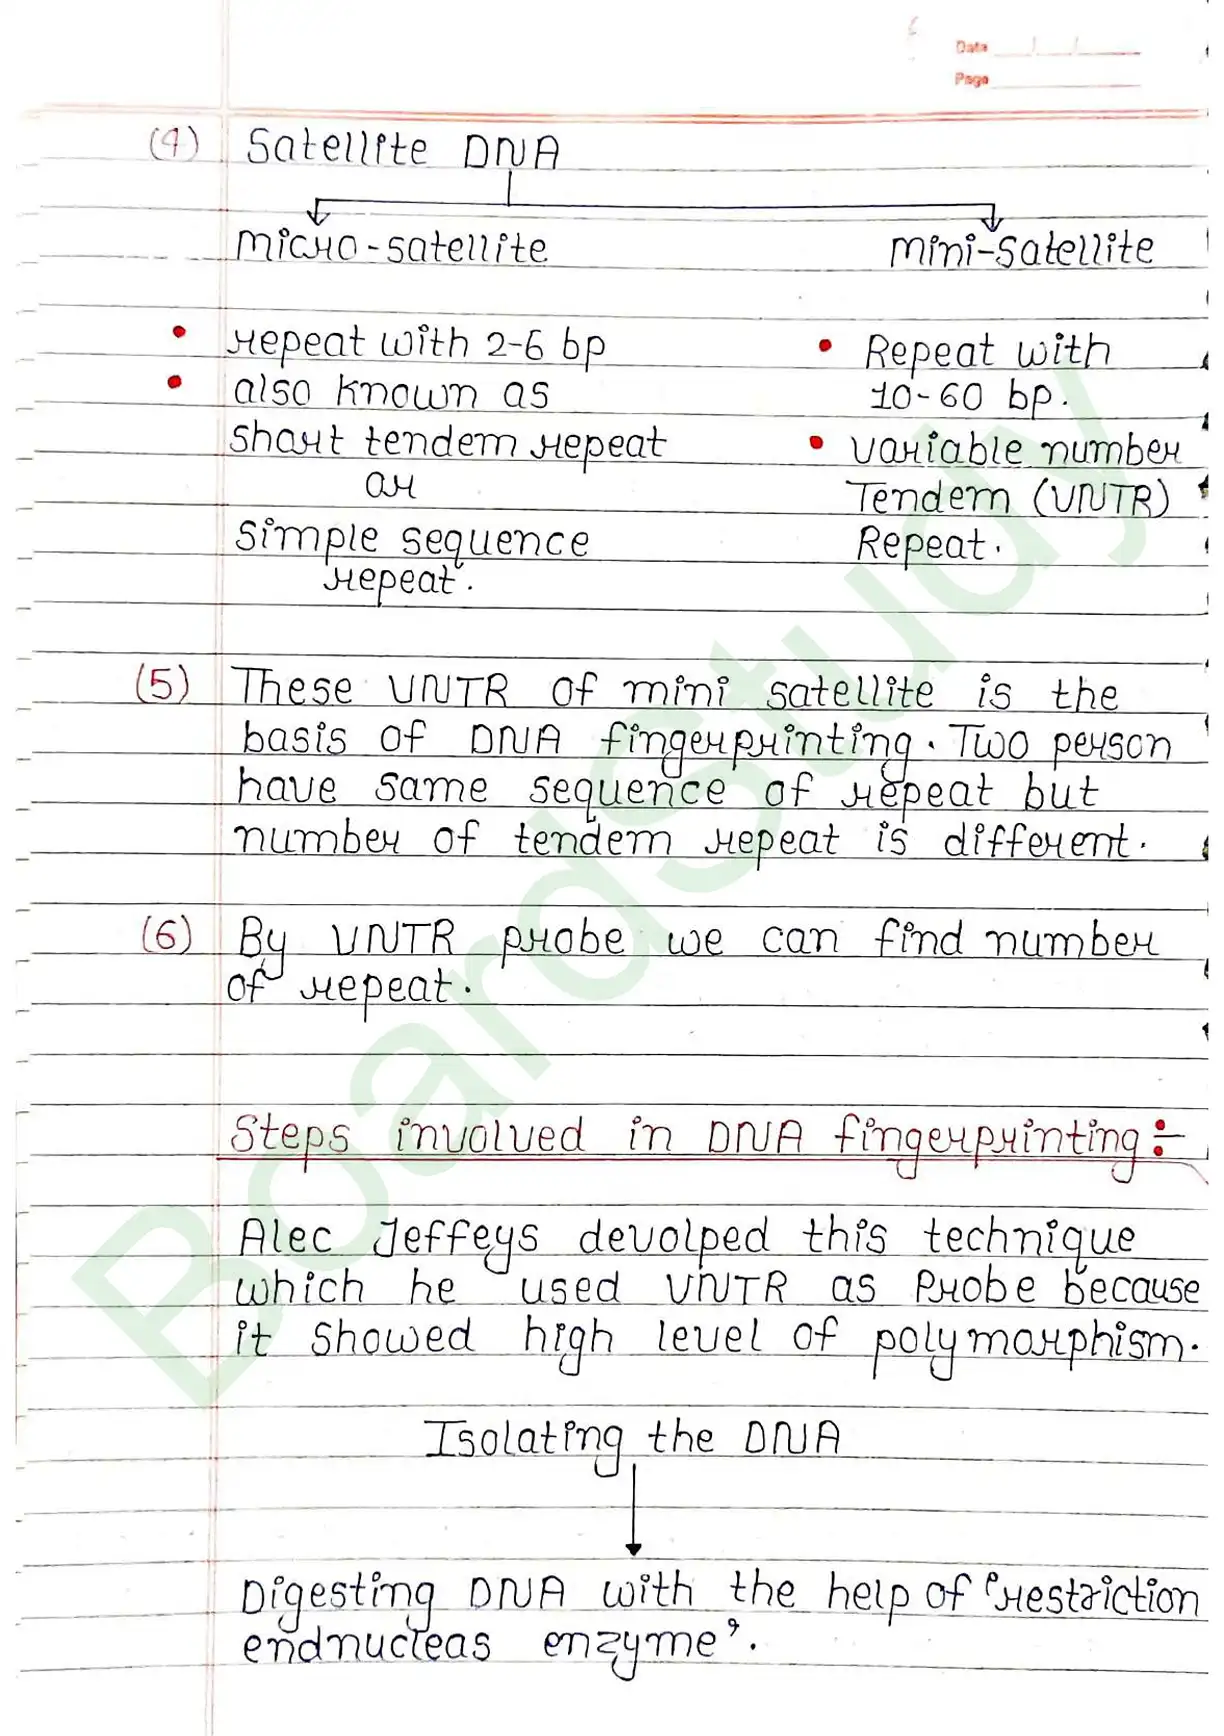 Date
Page
(4) Satellite DNA
micro-satellite mini-satellite
• repeat with 2-6 bp • Repeat with
• also known as 10-60 bp.
short tendem repeat • variable number
or Tendem (VNTR)
simple sequence Repeat.
repeat.
(5) These VNTR of mini satellite is the
basis of DNA fingerprinting. Two person
have same sequence of repeat but
number of tendem repeat is different.
(6) By VNTR probe we can find number
of repeat.
Steps involved in DNA fingerprinting ÷
Alec Jeffeys devolped this technique
which he used VNTR as Probe because
it showed high level of polymorphism.
Isolating the DNA
Digesting DNA with the help of "restriction
endnucleas enzyme".
BoardStudy